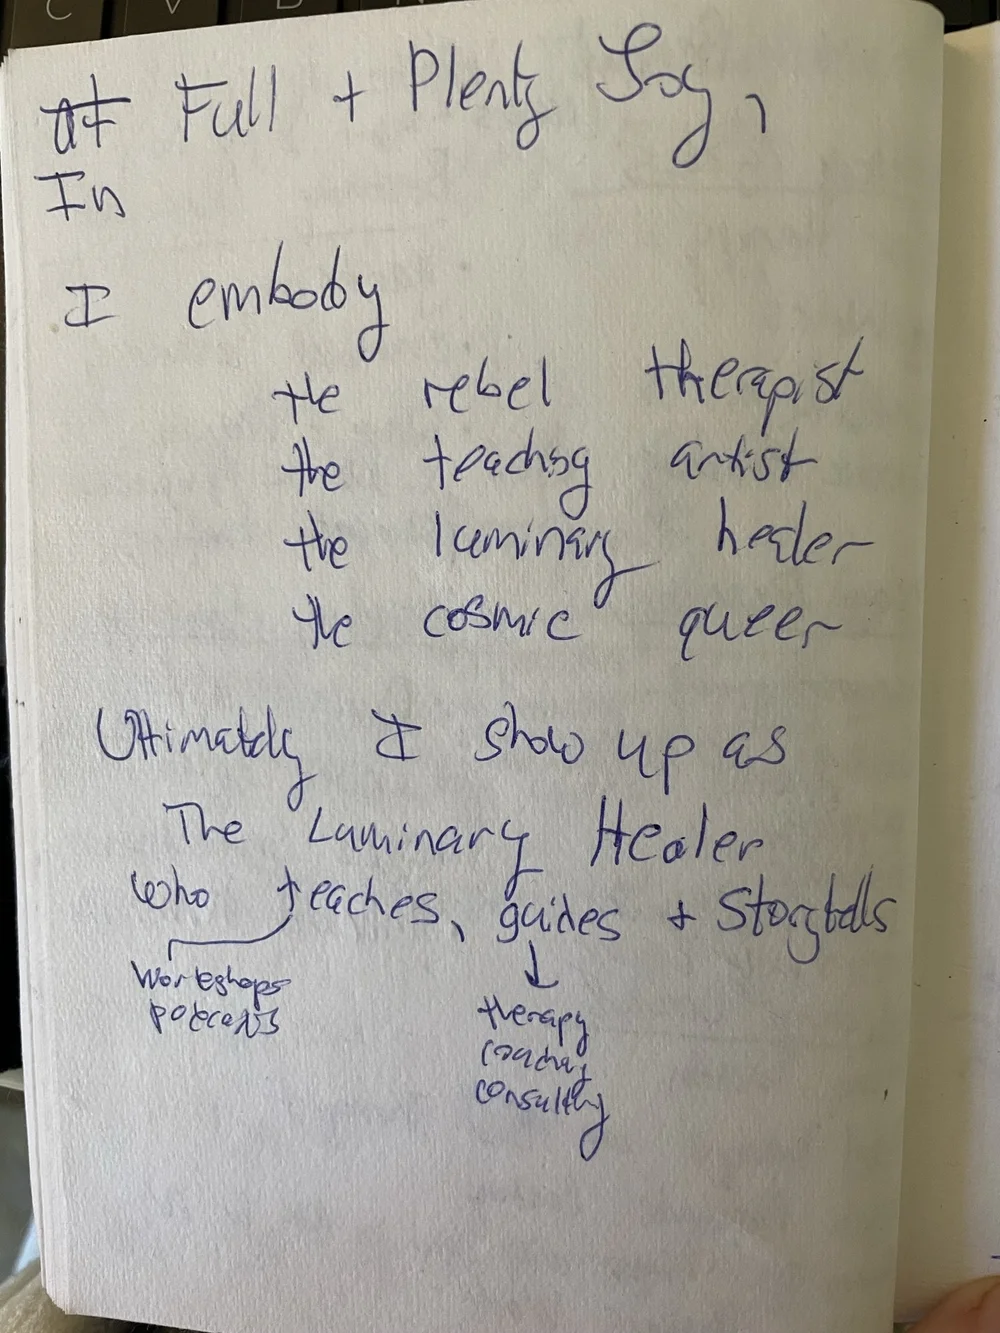 at Full + Plenty Joy,
In
I embody
the rebel therapist
the teaching artist
the luminary healer
the cosmic queer
Ultimately I show up as
The Luminary Healer
who teaches, guides + storytells
workshops
podcasts
therapy
coaching
consulting